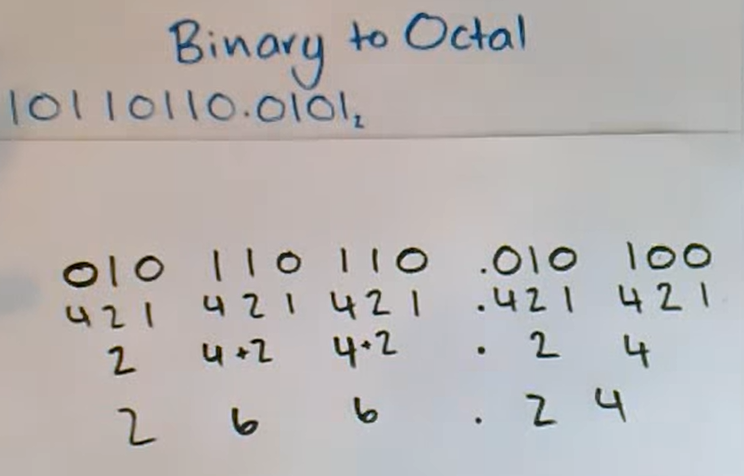 Binary to Octal
10110110.0101₂
010 110 110 .010 100
421 421 421 .421 421
2 4+2 4+2 . 2 4
2 6 6 . 2 4